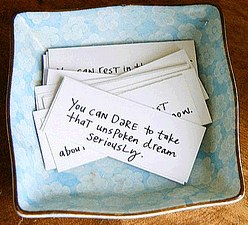 You can rest in th
st
now.
You can DaRe to take
that unspoken dream
seriously.
abou